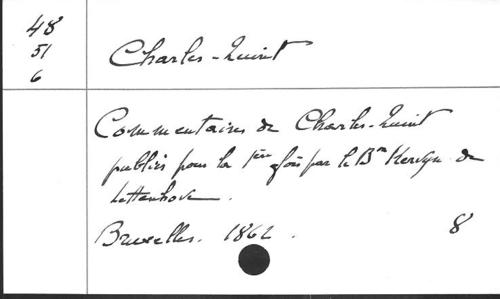 48
51
6
Charles-Quint
Commentaires de Charles-Quint
publiés pour la 1ère fois par le Bon Kervyn de
Lettenhove.
Bruxelles. 1862.
8